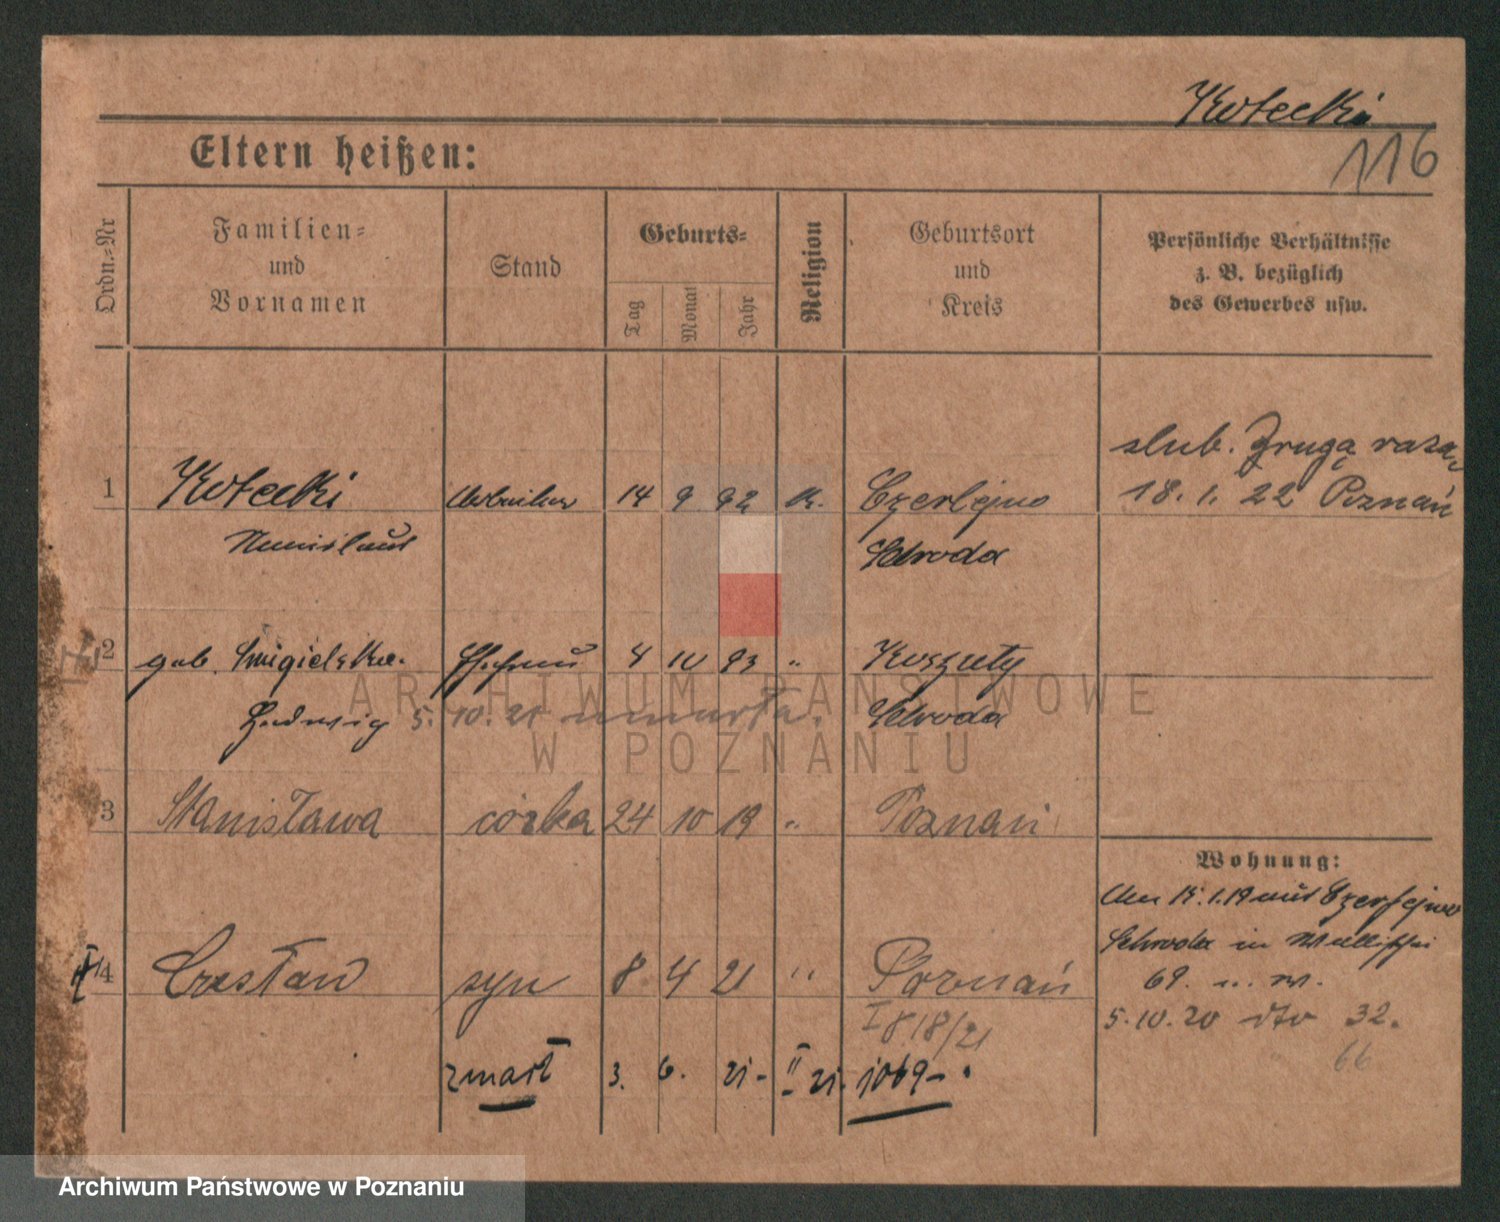 Kotecki
116
Eltern heißen:
Ordn.-Nr
Familien-
und
Vornamen
Stand
Geburts-
Tag
Monat
Jahr
Religion
Geburtsort
und
Kreis
Persönliche Verhältnisse
z. B. bezüglich
des Gewerbes usw.
ślub. Drugą razą
18. 1. 22 Poznań
1 Kotecki 14 9 92 k. Czerlejno
Schroda
2 geb. Smigielska. 4 10 93 " Koszuty
Hedwig 5. 10. 21 umarła. Schroda
3 Stanisława córka 24 10 19 " Poznań
Wohnung:
1.19 aus Czerlejno
Schroda in Wallischei
69.
5.10.20 dto 32.
66
4 Czesław syn 8 4 21 " Poznań
I 818/21
zmarł 3. 6. 21- II 21. 1069-
ARCHIWUM PAŃSTWOWE
W POZNANIU
Archiwum Państwowe w Poznaniu